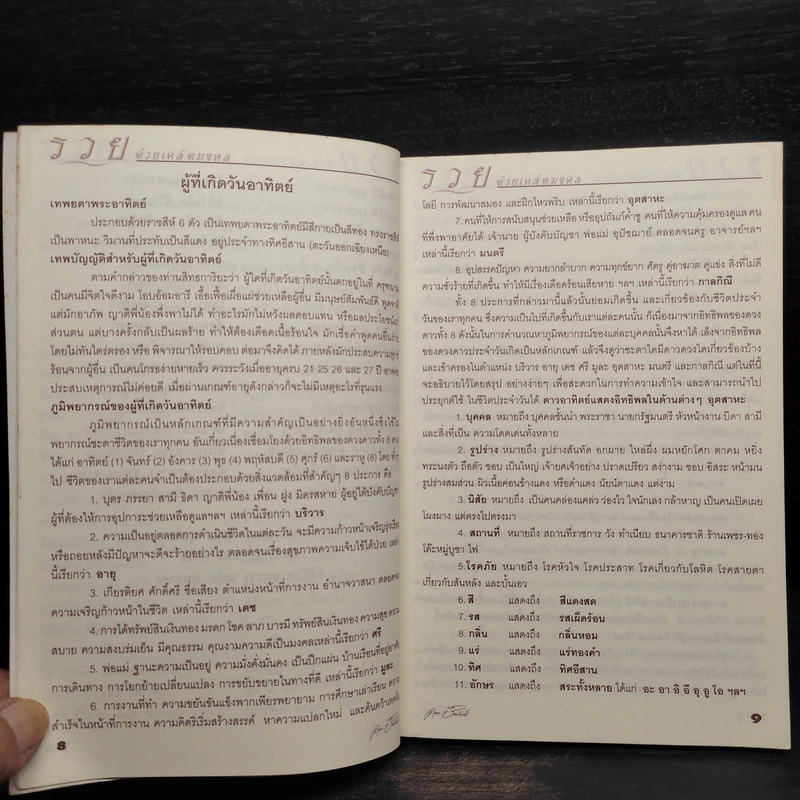 รวย ด้วยเคล็ดมงคล
ผู้ที่เกิดวันอาทิตย์
เทพยดาพระอาทิตย์
ประกอบด้วยราชสีห์ 6 ตัว เป็นเทพยดาพระอาทิตย์มีสีกายเป็นสีทอง ทรงราชสีห์
เป็นพาหนะ วิมานที่ประทับเป็นสีแดง อยู่ประจำทางทิศอีสาน (ตะวันออกเฉียงเหนือ)
เทพบัญญัติสำหรับผู้ที่เกิดวันอาทิตย์
ตามคำกล่าวของท่านสิทธการิยะว่า ผู้ใดที่เกิดวันอาทิตย์นั้นตกอยู่ในที่ ครุฑนาม
เป็นคนมีจิตใจดีงาม โอบอ้อมอารี เอื้อเฟื้อเผื่อแผ่ช่วยเหลือผู้อื่น มีมนุษย์สัมพันธ์ดี พูดจาดี
แต่มักอาภัพ ญาติพี่น้องพึ่งพาไม่ได้ ทำอะไรมักไม่หวังผลตอบแทน หรือผลประโยชน์แก่
ส่วนตน แต่บางครั้งกลับเป็นผลร้าย ทำให้ต้องเดือดเนื้อร้อนใจ มักเชื่อคำพูดคนอื่นง่าย
โดยไม่ทันไตร่ตรอง หรือ พิจารณาให้รอบคอบ ต่อมาจึงคิดได้ ภายหลังมักประสบความทุกข์
ร้อนจากผู้อื่น เป็นคนโกรธง่ายหายเร็ว ควรระวังเมื่ออายุครบ 21 25 26 และ 27 ปี อาจจะ
ประสบเหตุการณ์ไม่ค่อยดี เมื่อผ่านเกณฑ์อายุดังกล่าวก็จะไม่มีเหตุอะไรที่รุนแรง
ภูมิพยากรณ์ของผู้ที่เกิดวันอาทิตย์
ภูมิพยากรณ์เป็นหลักเกณฑ์ที่มีความสำคัญเป็นอย่างยิ่งอันหนึ่งซึ่งใช้ใน
พยากรณ์ชะตาชีวิตของเราทุกคน อันเกี่ยวเนื่องเชื่อมโยงด้วยอิทธิพลของดวงดาวทั้ง 8 ดวง
ได้แก่ อาทิตย์ (1) จันทร์ (2) อังคาร (3) พุธ (4) พฤหัสบดี (5) ศุกร์ (6) และราหู (8) โดย
ไป ชีวิตของเราแต่ละคนจำเป็นต้องประกอบด้วยสิ่งแวดล้อมที่สำคัญๆ 8 ประการ คือ
1. บุตร ภรรยา สามี ธิดา ญาติพี่น้อง เพื่อน ฝูง มิตรสหาย ผู้อยู่ใต้บังคับบัญชา
ผู้ที่ต้องให้การอุปการะช่วยเหลือดูแลฯลฯ เหล่านี้เรียกว่า บริวาร
2. ความเป็นอยู่ตลอดการดำเนินชีวิตในแต่ละวัน จะมีความก้าวหน้าเจริญรุ่งเรือง
หรือถอยหลังมีปัญหาจะดีจะร้ายอย่างไร ตลอดจนเรื่องสุขภาพความเจ็บไข้ได้ป่วย เหล่า
นี้เรียกว่า อายุ
3. เกียรติยศ ศักดิ์ศรี ชื่อเสียง ตำแหน่งหน้าที่การงาน อำนาจวาสนา ตลอดจน
ความเจริญก้าวหน้าในชีวิต เหล่านี้เรียกว่า เดช
4. การได้ทรัพย์สินเงินทอง มรดก โชค ลาภ บารมี ทรัพย์สินเงินทอง ความสุข ความ
สบาย ความสงบร่มเย็น มีคุณธรรม คุณงามความดีเป็นมงคลเหล่านี้เรียกว่า ศรี
5. พ่อแม่ ฐานะความเป็นอยู่ ความมั่งคั่งมั่นคง เป็นปึกแผ่น บ้านเรือนที่อยู่อาศัย
การเดินทาง การโยกย้ายเปลี่ยนแปลง การขยับขยายในทางที่ดี เหล่านี้เรียกว่า มูละ
6. การงานที่ทำ ความขยันขันแข็งพากเพียรพยายาม การศึกษาเล่าเรียน ความ
สำเร็จในหน้าที่การงาน ความคิดริเริ่มสร้างสรรค์ หาความแปลกใหม่ และค้นคว้าเทคโน
8
รวย ด้วยเคล็ดมงคล
โลยี การพัฒนาสมอง และฝึกไหวพริบ เหล่านี้เรียกว่า อุตสาหะ
7. คนที่ให้การสนับสนุนช่วยเหลือ หรืออุปถัมภ์ค้ำชู คนที่ให้ความคุ้มครองดูแล คน
ที่พึ่งพาอาศัยได้ เจ้านาย ผู้บังคับบัญชา พ่อแม่ อุปัชฌาย์ ตลอดจนครู อาจารย์ฯลฯ
เหล่านี้เรียกว่า มนตรี
8. อุปสรรคปัญหา ความยากลำบาก ความทุกข์ยาก ศัตรู คู่อาฆาต คู่แข่ง สิ่งที่ไม่ดี
ความชั่วร้ายที่เกิดขึ้น ทำให้มีเรื่องเดือดร้อนเสียหาย ฯลฯ เหล่านี้เรียกว่า กาลกิณี
ทั้ง 8 ประการที่กล่าวมานี้แล้วนั้นย่อมเกิดขึ้น และเกี่ยวข้องกับชีวิตประจำ
วันของเราทุกคน ซึ่งความเป็นไปที่เกิดขึ้นกับเราแต่ละคนนั้น ก็เนื่องมาจากอิทธิพลของดวง
ดาวทั้ง 8 ดังนั้นในการคำนวณหาภูมิพยากรณ์ของแต่ละบุคคลนั้นจึงหาได้ เล็งจากอิทธิพล
ของดวงดาวประจำวันเกิดเป็นหลักเกณฑ์ แล้วจึงดูว่าชะตาใดมีดาวดวงใดเกี่ยวข้องบ้าง
และเข้าครองในตำแหน่ง บริวาร อายุ เดช ศรี มูละ อุตสาหะ มนตรี และกาลกิณี แต่ในที่นี้
จะอธิบายไว้โดยสรุป อย่างง่ายๆ เพื่อสะดวกในการทำความเข้าใจ และสามารถนำไป
ประยุกต์ใช้ ในชีวิตประจำวันได้ ดาวอาทิตย์แสดงอิทธิพลในด้านต่างๆ อุตสาหะ
1. บุคคล หมายถึง บุคคลชั้นนำ พระราชา นายกรัฐมนตรี หัวหน้างาน บิดา สามี
และสิ่งที่เป็น ความโดดเด่นทั้งหลาย
2. รูปร่าง หมายถึง รูปร่างสันทัด อกผาย ไหล่ผึ่ง ผมหยักโศก ตาคม หยิ่ง
ทระนงตัว ถือตัว ชอบ เป็นใหญ่ เจ้ายศเจ้าอย่าง ปราดเปรียว สง่างาม ชอบ อิสระ หน้ามน
รูปร่างสมส่วน ผิวเนื้อค่อนข้างแดง หรือดำแดง นัยน์ตาแดง แต่งาม
3. นิสัย หมายถึง เป็นคนคล่องแคล่ว ว่องไว ใจนักเลง กล้าหาญ เป็นคนเปิดเผย
โผงผาง แต่ตรงไปตรงมา
4. สถานที่ หมายถึง สถานที่ราชการ วัง ทำเนียบ ธนาคารชาติ ร้านเพชร-ทอง
โต๊ะหมู่บูชา ไฟ
5.โรคภัย หมายถึง โรคหัวใจ โรคประสาท โรคเกี่ยวกับโลหิต โรคสายตา
เกี่ยวกับสันหลัง และบั้นเอว
6. สี แสดงถึง สีแดงสด
7. รส แสดงถึง รสเผ็ดร้อน
8. กลิ่น แสดงถึง กลิ่นหอม
9. แร่ แสดงถึง แร่ทองคำ
10. ทิศ แสดงถึง ทิศอีสาน
11. อักษร แสดงถึง สระทั้งหลาย ได้แก่ อะ อา อิ อี อุ อู โอ ฯลฯ
9